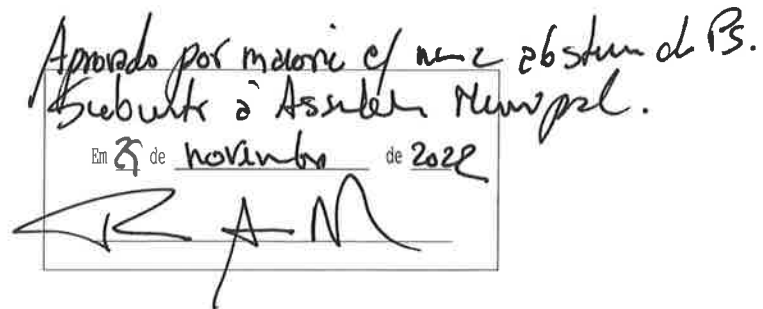 Aprovado por maioria c/ uma abstenção do PS.
Submeter à Assembleia Municipal.
Em 25 de novembro de 2022